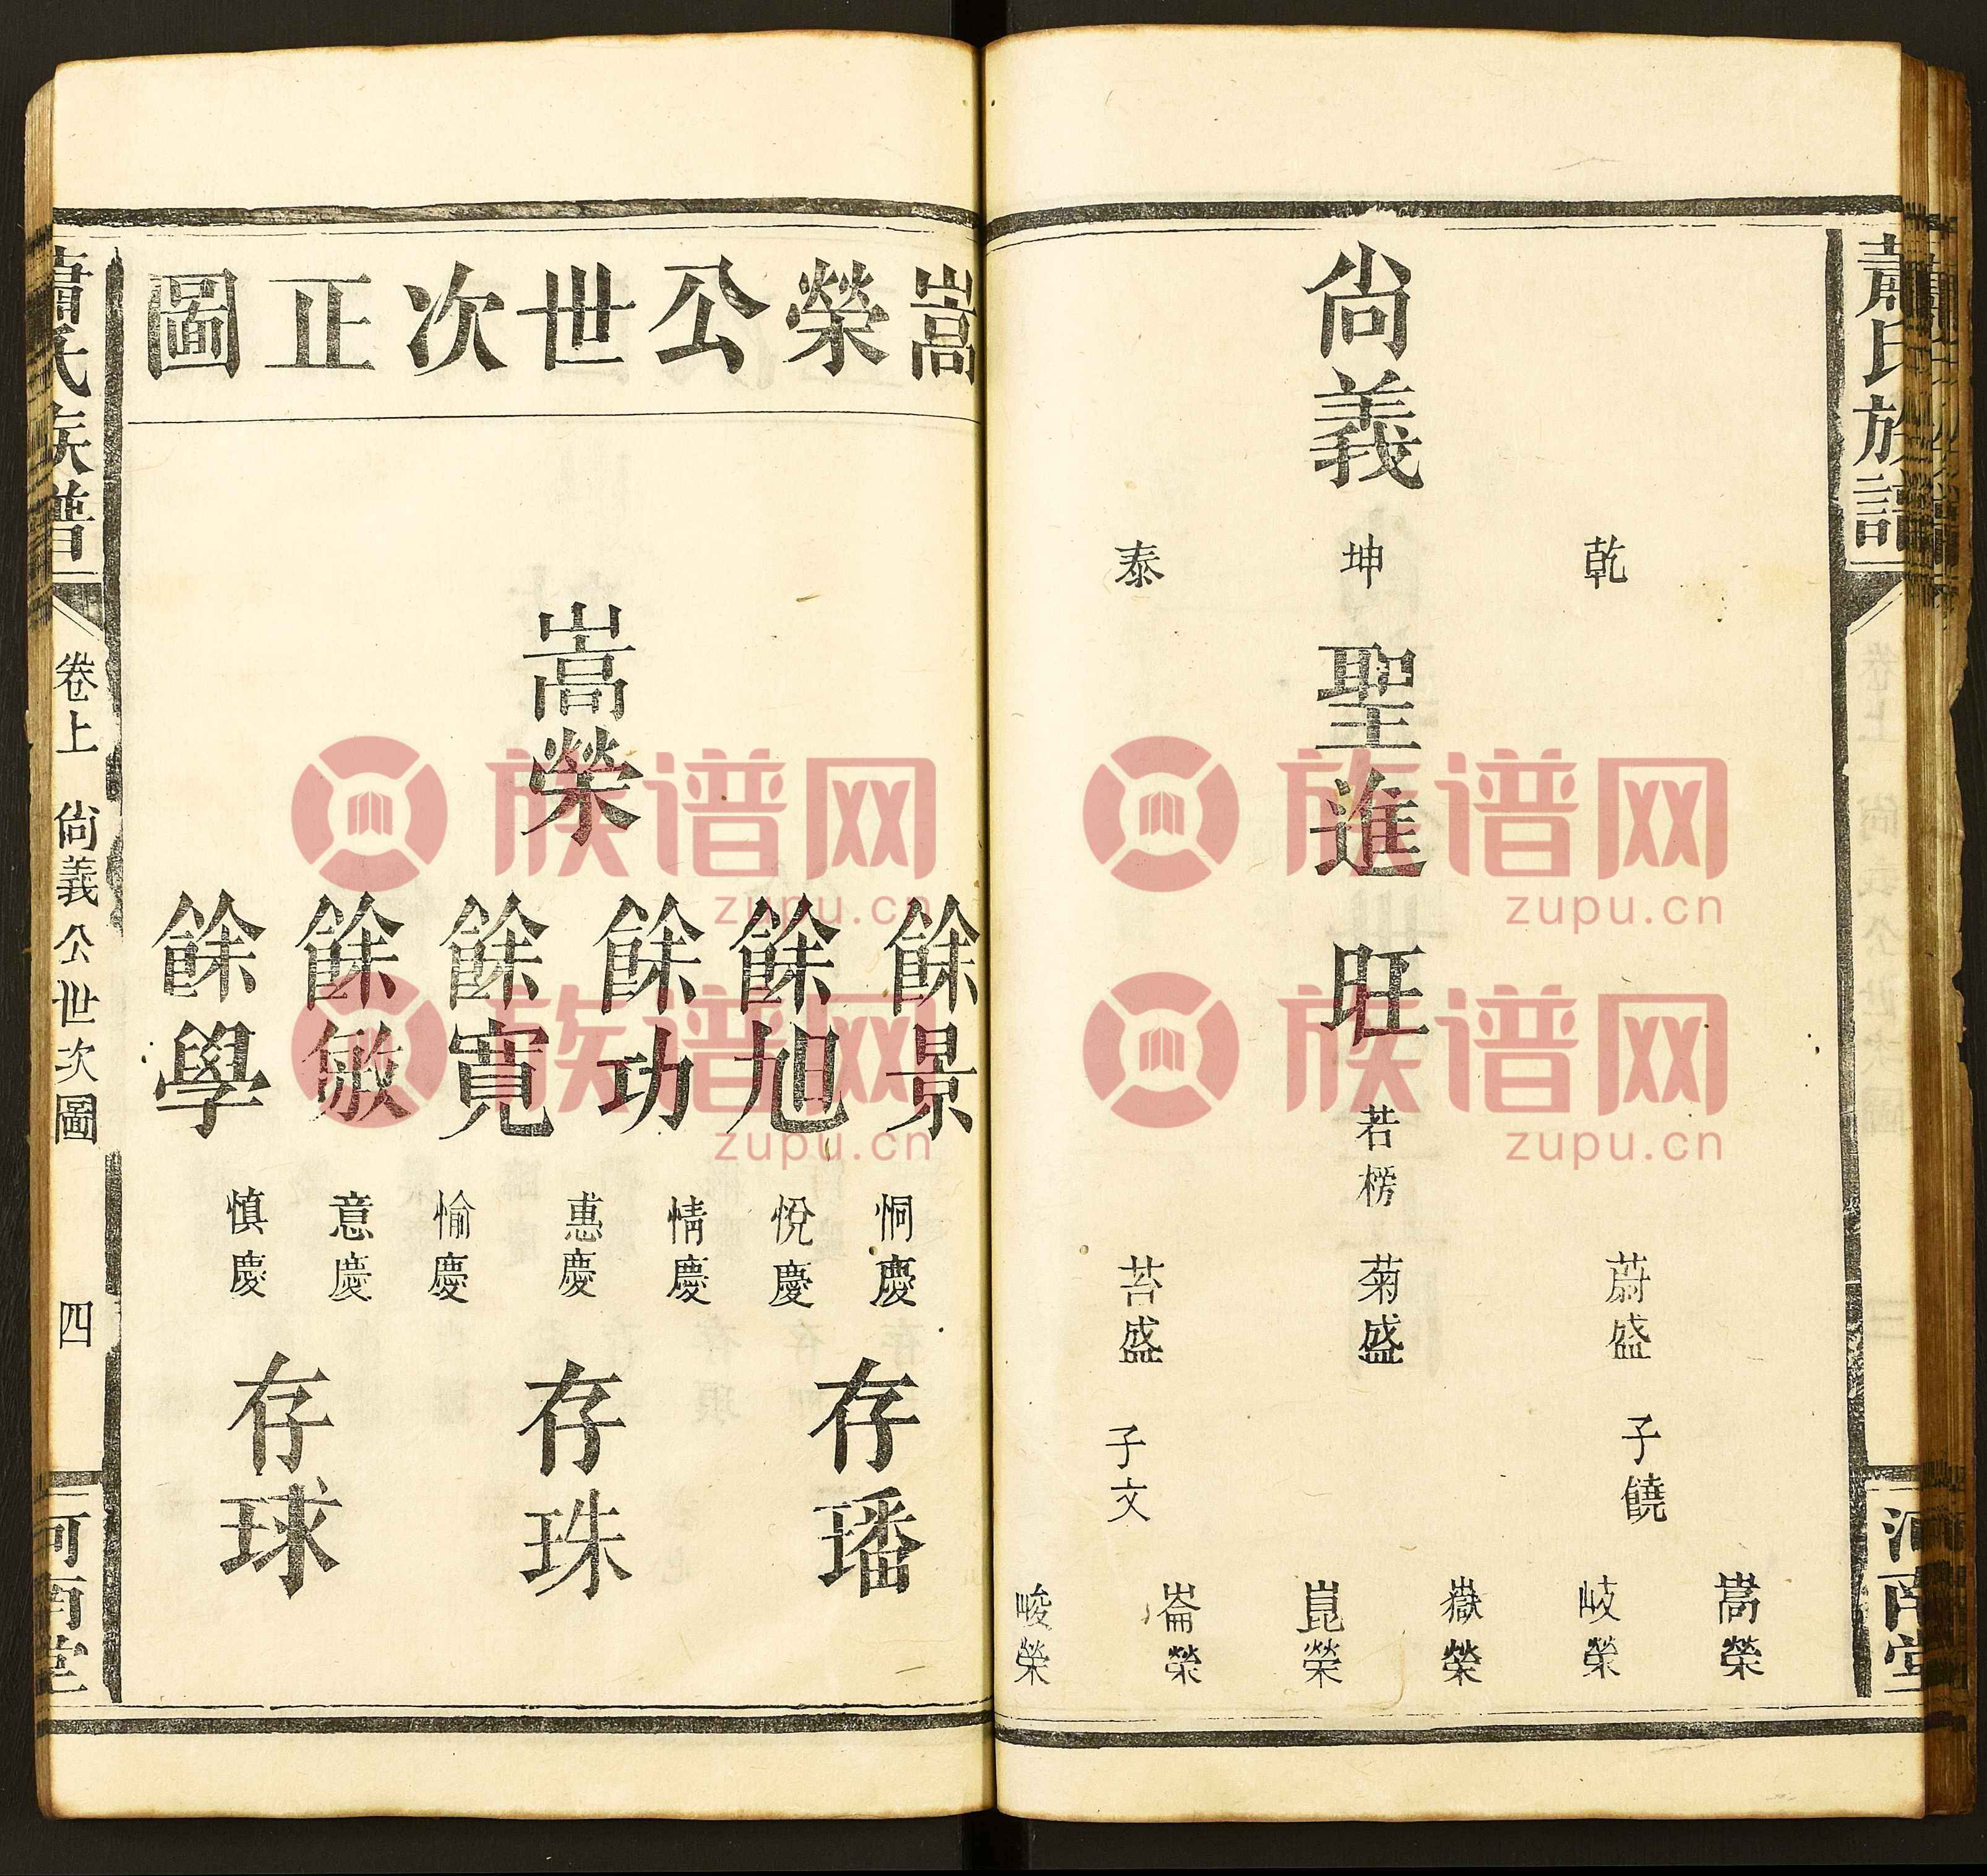 蕭氏族譜
河南堂
尙義
乾
坤
泰
聖進
旺
若楞
蔚盛
菊盛
苔盛
子饒
子文
嵩榮
岐榮
嶽榮
崑榮
崙榮
峻榮
嵩榮公世次正圖
嵩榮
餘景
餘旭
餘功
餘寬
餘敏
餘學
恫慶
悅慶
情慶
惠慶
愉慶
意慶
慎慶
存璠
存珠
存球
蕭氏族譜
卷上 尙義公世次圖 四
河南堂
族谱网
zupu.cn
族谱网
zupu.cn
族谱网
zupu.cn
族谱网
zupu.cn